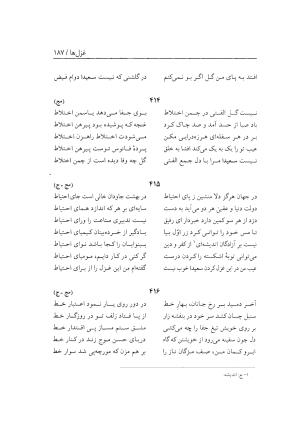 غزل‌ها / ۱۸۷
افتد به پای من گل اگر بو نمی‌کنم
در گلشنی که نیست سعیدا دوام فیض
۴۱۴
(مج)
نیست گل الفتی در چمن اختلاط
بوی جفا می‌دهد یاسمن اختلاط
باد صبا از حسد آمد و صد چاک کرد
غنچه که پوشیده بود پیرهن اختلاط
بر در هر سفله‌ای هرزه‌درایی مکن
می‌شودت اختلاط راهزن اختلاط
عیب تو یا یک به یک می‌کند افشا به خلق
پردهٔ فانوس توست پیرهن اختلاط
نیست سعیدا مرا با دل جمع الفتی
گل چه وفا دیده است از چمن اختلاط
۴۱۵
(مج ، ج)
در جهان هرگز دلا منشین ز پای احتیاط
در بهشت جاودان خالی است جای احتیاط
دولت دنیا و عقبی هر دو می‌آید به دست
سایه‌ای بر هر که اندازد همای احتیاط
دزد از هر سو کمین دارد خبردار ای رفیق
نیست تدبیری متاعت را ورای احتیاط
تا مس خود را توانی کرد زر اوّل بیا
یادگیر از خرده‌بینان کیمیای احتیاط
نیست بر آزادگان اندیشه‌ای۱ از کفر و دین
بینوایان را کجا باشد نوای احتیاط
می‌توانی توبهٔ اشکسته را کردن درست
گر کنی در کار دایم، مومیای احتیاط
عیب من در این غزل کردن سعیدا خوب نیست
گفته‌ام من این غزل را از برای احتیاط
۴۱۶
(مج ، ج)
آخر دمید بر رخ جانان، بهار خط
در دور روی یار نمود اعتبار خط
سنبل چسان کند سر خود در بنفشه زار
از پا فتاد زلف تو در روزگار خط
بر روی خویش تیغ جفا را چه می‌کشی
مشق ستم مساز پی اقتدار خط
دل چون سفینه می‌رود از خود که تا کشد
دریای حسن موج زند در کنار خط
ابرو کمان من، صف مژگان نیاز را
بر هم مزن که مورچه‌پی شد سوار خط
۱- ج: اندیشه.